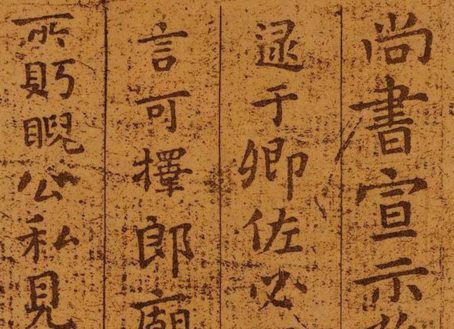 尚書宣示
逮于卿佐必
言可擇郎廟
所貺公私見